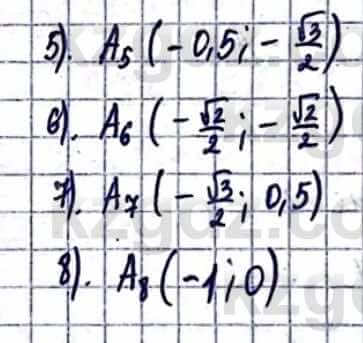 5). A₅ (-0,5; -√3/2)
6). A₆ (-√2/2; -√2/2)
7). A₇ (-√3/2; 0,5)
8). A₈ (-1; 0)